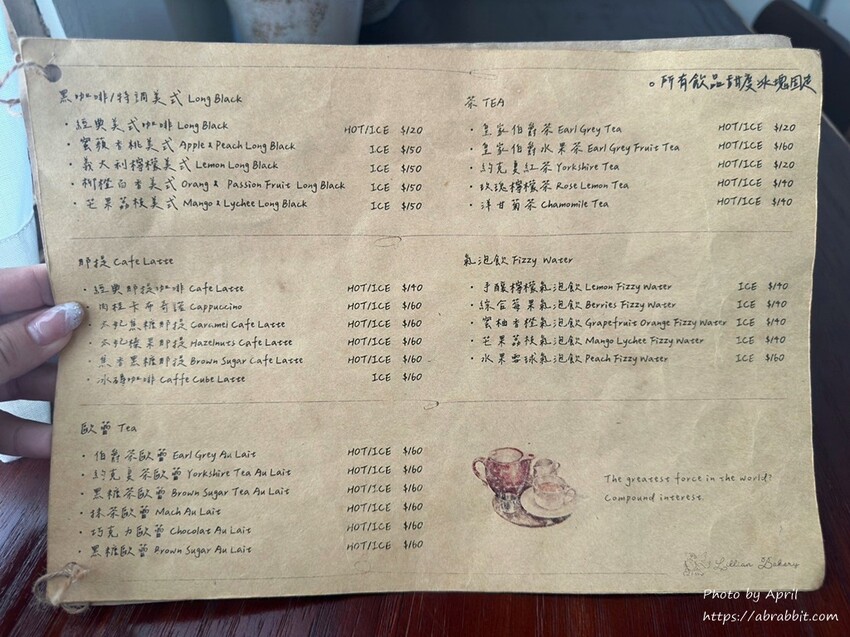 黑咖啡/特調美式 Long Black
經典美式咖啡 Long Black HOT/ICE $120
蜜蘋香桃美式 Apple & Peach Long Black ICE $150
義大利檸檬美式 Lemon Long Black ICE $150
柳橙百香美式 Orang & Passion Fruit Long Black ICE $150
芒果荔枝美式 Mango & Lychee Long Black ICE $150
那提 Cafe Latte
經典那提咖啡 Cafe Latte HOT/ICE $140
肉桂卡布奇諾 Cappuccino HOT/ICE $160
太妃焦糖那提 Caramel Cafe Latte HOT/ICE $160
太妃榛果那提 Hazelnuts Cafe Latte HOT/ICE $160
焦香黑糖那提 Brown Sugar Cafe Latte HOT/ICE $160
冰磚咖啡 Caffe Cube Latte ICE $160
歐蕾 Tea
伯爵茶歐蕾 Earl Grey Au Lait HOT/ICE $160
約克夏茶歐蕾 Yorkshire Tea Au Lait HOT/ICE $160
黑糖茶歐蕾 Brown Sugar Tea Au Lait HOT/ICE $160
抹茶歐蕾 Mach Au Lait HOT/ICE $160
巧克力歐蕾 Chocolat Au Lait HOT/ICE $160
黑糖歐蕾 Brown Sugar Au Lait HOT/ICE $160
。所有飲品甜度冰塊固定
茶 TEA
皇家伯爵茶 Earl Grey Tea HOT/ICE $120
皇家伯爵水果茶 Earl Grey Fruit Tea HOT/ICE $160
約克夏紅茶 Yorkshire Tea HOT/ICE $120
玫瑰檸檬茶 Rose Lemon Tea HOT/ICE $140
洋甘菊茶 Chamomile Tea HOT/ICE $140
氣泡飲 Fizzy Water
手釀檸檬氣泡飲 Lemon Fizzy Water ICE $140
綜合莓果氣泡飲 Berries Fizzy Water ICE $140
蜜柚香橙氣泡飲 Grapefruit Orange Fizzy Water ICE $140
芒果荔枝氣泡飲 Mango Lychee Fizzy Water ICE $140
水果雪球氣泡飲 Peach Fizzy Water ICE $160
The greatest force in the world?
Compound interest.
Lillian Bakery
Photo by April
https://abrabbit.com